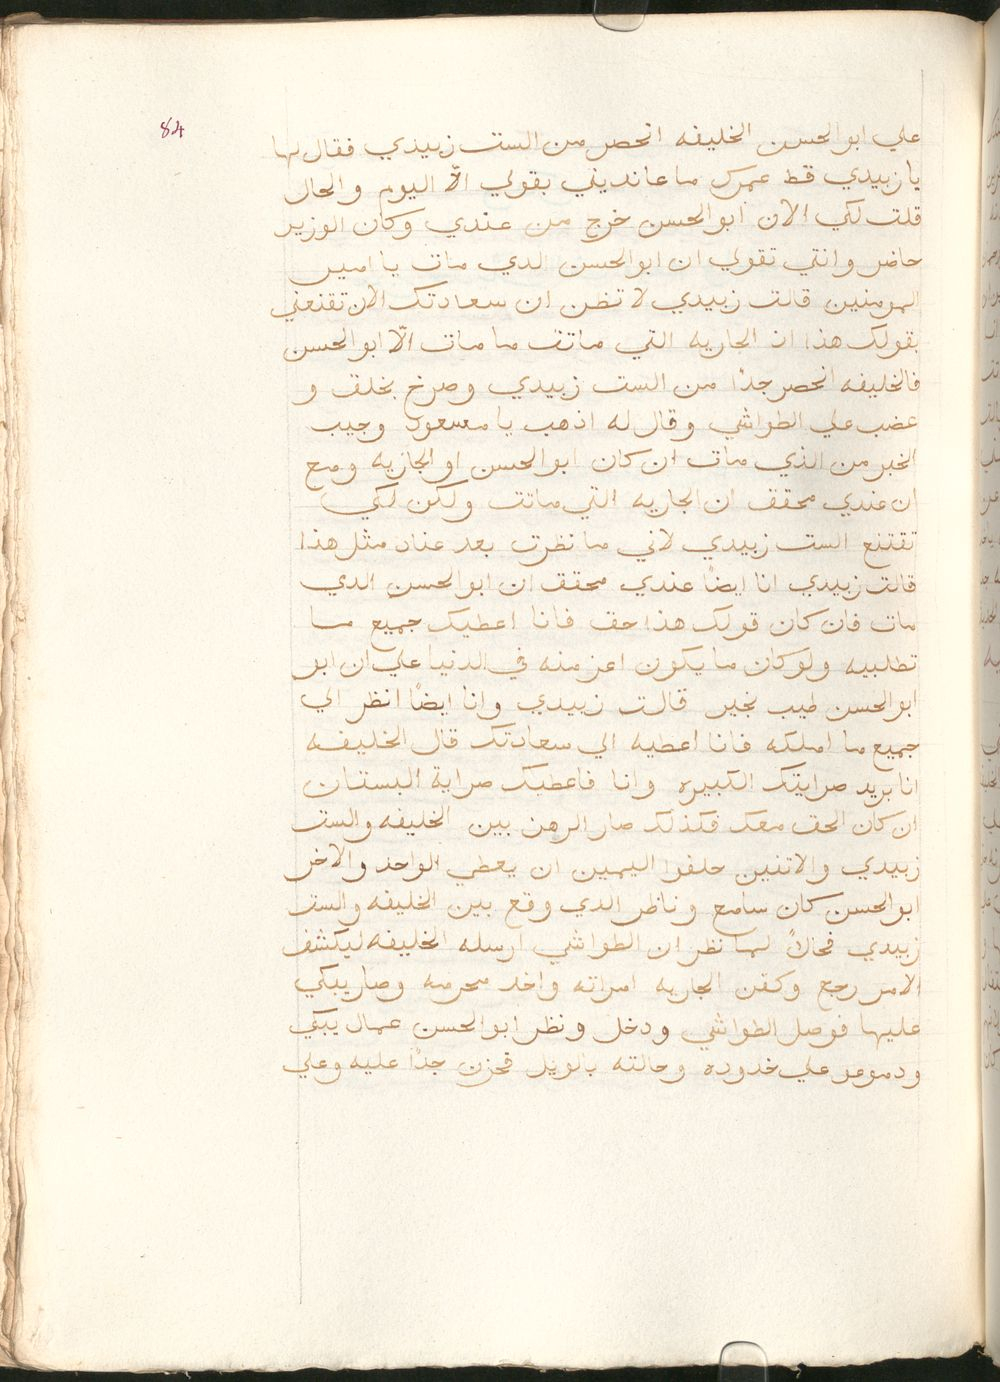 84
علي ابو الحسن الخليفه انحصر من الست زبيدي فقال لها
يا زبيدي قط عمرك ما عانديني بقولي الّا اليوم والحال
قلت لكي الان ابو الحسن خرج من عندي وكان الوزير
حاضر وانتي تقولي ان ابو الحسن الدي مات يا امير
المومنين قالت زبيدي لا تظن ان سعادتك الان تقنعني
بقولك هذا ان الجاريه التي ماتت ما مات الّا ابو الحسن
فالخليفه انحصر جدًا من الست زبيدي وصرخ بخلق و
غضب علي الطواشي وقال له اذهب يا مسعود وجيب
الخبر من الذي مات ان كان ابو الحسن او الجاريه ومع
ان عندي محقق ان الجاريه التي ماتت ولكن لكي
تقتنع الست زبيدي لاني ما نظرت بعد عناد مثل هذا
قالت زبيدي انا ايضًا عندي محقق ان ابو الحسن الدي
مات فان كان قولك هذا حق فانا اعطيك جميع ما
تطلبيه ولو كان ما يكون اعز منه في الدنيا علي ان ابو
ابو الحسن طيب بخير قالت زبيدي وانا ايضًا انظر الي
جميع ما املكه فانا اعطيه الي سعادتك قال الخليفه
انا بريد صرايتك الكبيره وانا فاعطيك صراية البستان
ان كان الحق معك فكذلك صار الرهن بين الخليفه والست
زبيدي والاتنين حلفوا اليمين ان يعطي الواحد والاخر
ابو الحسن كان سامع وناظر الدي وقع بين الخليفه والست
زبيدي فحالاً لما نظر ان الطواشي ارسله الخليفه ليكشف
الامر رجع وكفن الجاريه امراته واخد محرمه وصار يبكي
عليها فوصل الطواشي ودخل ونظر ابو الحسن عمال يبكي
ودموعو علي خدوده وحالته بالويل فحزن جدًا عليه وعلي